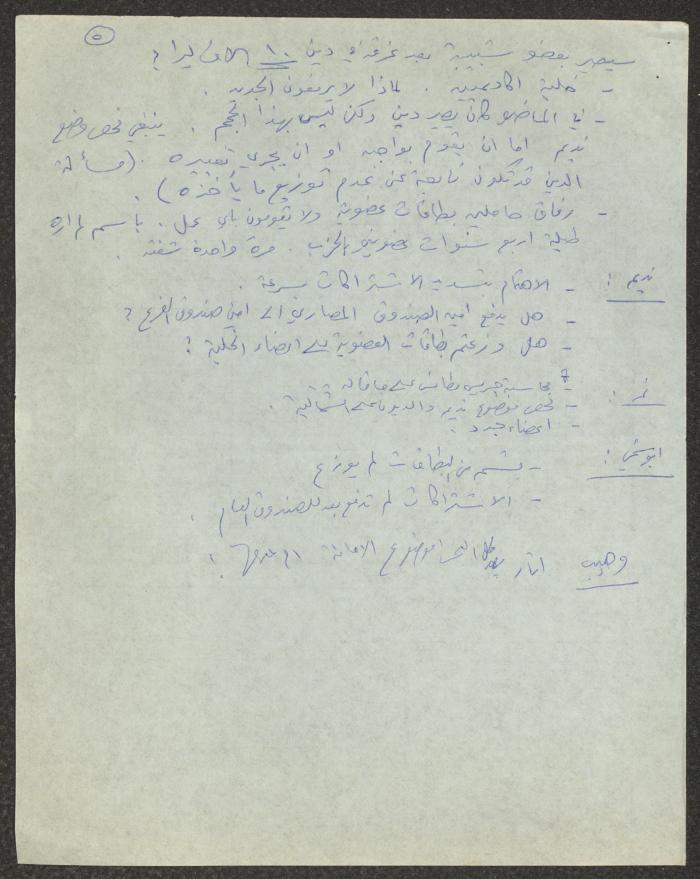 ٥
سيصير بعضو شبيبة بعد غرقه في دين ١٠ الاف ليرا ؟
- خلية اكاديميين . لماذا لا يريدون الجدد .
- في الماضي كان يصير دين ولكن ليس بهذا الحجم . ينبغي فحص وضع
نديم اما ان يقوم بواجبه او ان يجري تغييره . (مسألة
الدين قد تكون ناتجة عن عدم توزيع ما يأخذه) .
- رفاق حاملين بطاقات عضوية ولا يقومون باي عمل . باسم لم اره
طيلة اربع سنوات عضويتي بالحزب . مرة واحدة شفته .
نديم : - الاهتمام بتسديد الاشتراكات بسرعة .
- هل يدفع امين الصندوق المصاري الى امين صندوق الفرع ؟
- هل وزعتم بطاقات العضوية على اعضاء الخلية ؟
نمر : - محاسبة على ما قاله
- فحص موضوع نديم والديون على
- اعضاء جدد .
: - قسم من البطاقات لم يوزع
- الاشتراكات لم تدفع بعد للصندوق العام .
وهيب اثار موضوع